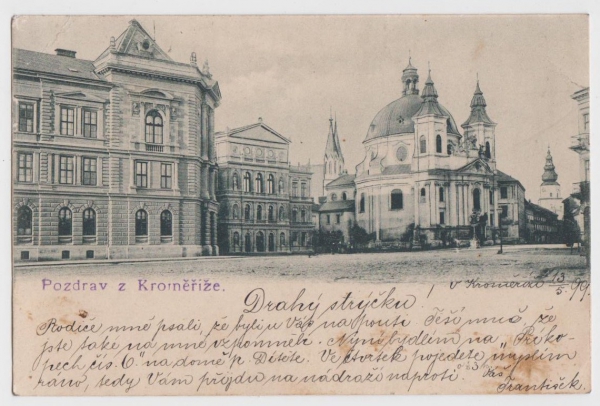 Pozdrav z Kroměříže.
v Kroměříži 13/5 99.
Drahý strýčku!
Rodiče mně psali, že byli u Vás na pouti. Těší mně že
jste také na mně vzpomněli. Nyní bydlím na „Příko-
pech čís. 6" na domě p. Dítěte. Ve čtvrtek pojedete, myslím
ráno, tedy Vám přijdu na nádraží naproti.
Váš
František.